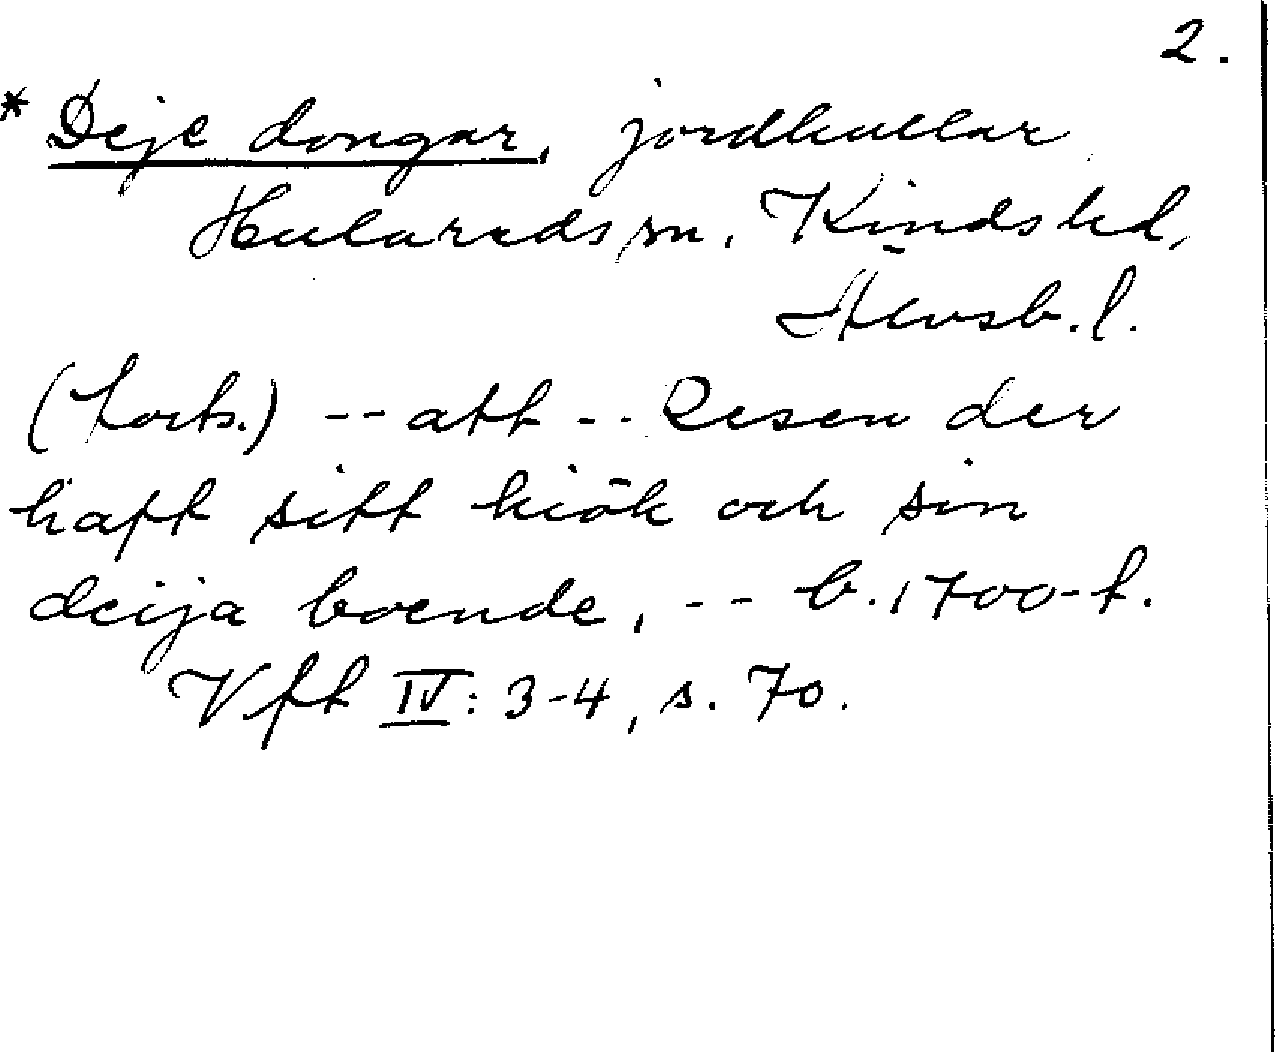 2.
* Deje dongar, jordkullar
Hulareds sn. Kinds hd,
Älvsb. l.
(forts.) -- att -- Resen der
haft sitt kiök och sin
deija boende, -- b. 1700-t.
Vft IV: 3-4, s. 70.